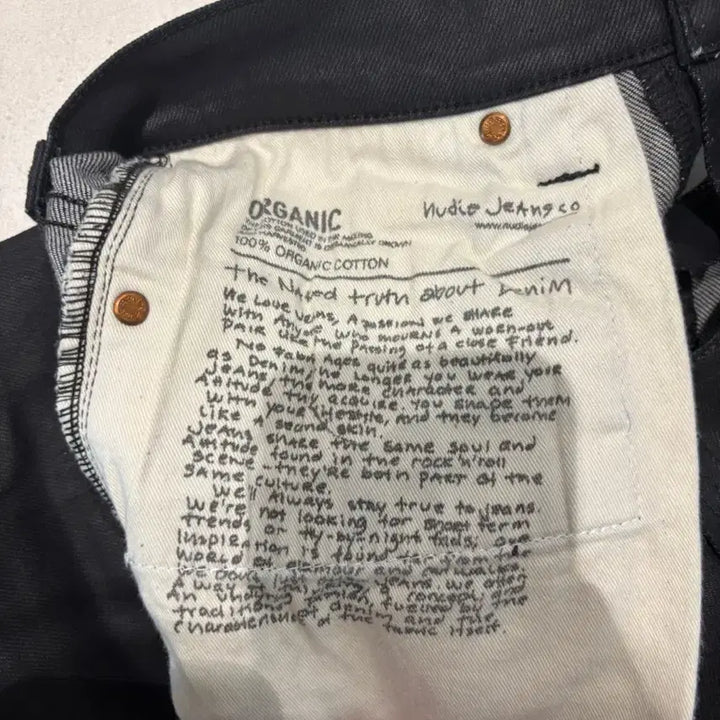 ORGANIC
nudie Jeans co
www.nudie
100% ORGANIC COTTON
the Naked truth about Denim
We Love Jeans, A passion we share
with Anyone who mourns A worn-out
pair like the passing of a close friend.
No fabric Ages quite as beautifully
as Denim, the longer you wear your
Jeans the more character and
Attitude they acquire. You shape them
with your lifestyle, and they become
like a second skin.
Jeans share the same soul and
Attitude found in the rock'n'roll
scene - they're both part of the
same culture.
We'll Always stay true to jeans.
We're not looking for short term
trends or fly-by-night fads, our
inspiration is found far from the
world of glamour and
We don't just jeans. We offer
A way of a concept, an
tradition of denim fuelled by the
characteristics of the and the
fabric itself.